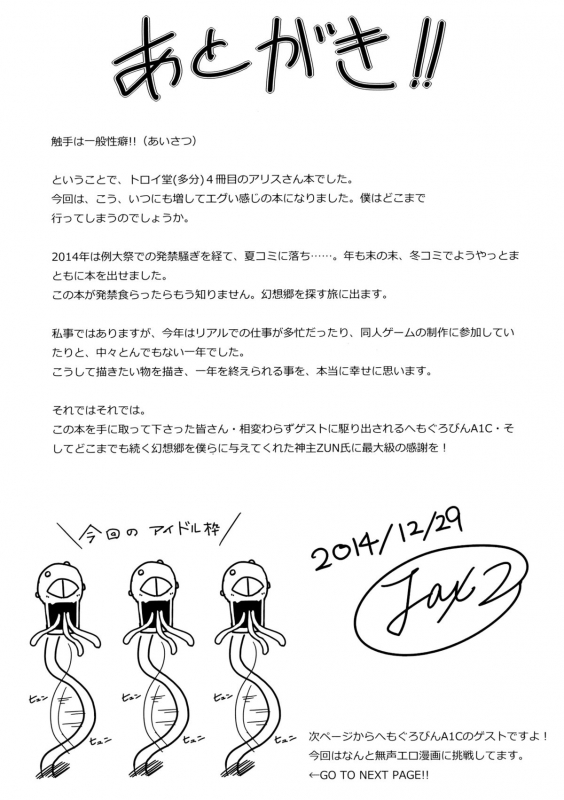 あとがき!!
触手は一般性癖!!（あいさつ）
ということで、トロイ堂(多分)４冊目のアリスさん本でした。
今回は、こう、いつにも増してエグい感じの本になりました。僕はどこまで
行ってしまうのでしょうか。
2014年は例大祭での発禁騒ぎを経て、夏コミに落ち……。年も末の末、冬コミでようやっとま
ともに本を出せました。
この本が発禁食らったらもう知りません。幻想郷を探す旅に出ます。
私事ではありますが、今年はリアルでの仕事が多忙だったり、同人ゲームの制作に参加してい
たりと、中々とんでもない一年でした。
こうして描きたい物を描き、一年を終えられる事を、本当に幸せに思います。
それではそれでは。
この本を手に取って下さった皆さん・相変わらずゲストに駆り出されるへもぐろびんA1C・そ
してどこまでも続く幻想郷を僕らに与えてくれた神主ZUN氏に最大級の感謝を！
今回のアイドル枠
ヒュン
ヒュン
ヒュン
ヒュン
ヒュン
ヒュン
2014/12/29
Jax2
次ページからへもぐろびんA1Cのゲストですよ！
今回はなんと無声エロ漫画に挑戦してます。
←GO TO NEXT PAGE!!